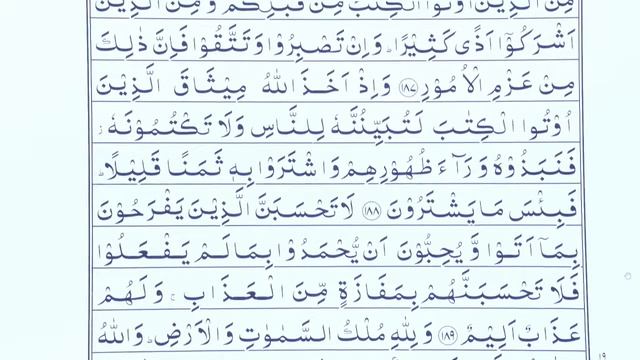 مِنَ الَّذِيْنَ اُوْتُوا الْكِتٰبَ مِنْ قَبْلِكُمْ وَ مِنَ الَّذِيْنَ
اَشْرَكُوْۤا اَذًى كَثِيْرًا ؕ وَاِنْ تَصْبِرُوْا وَتَتَّقُوْا فَاِنَّ ذٰلِكَ
مِنْ عَزْمِ الْاُمُوْرِ ١٨٧ وَاِذْ اَخَذَ اللّٰهُ مِيْثَاقَ الَّذِيْنَ
اُوْتُوا الْكِتٰبَ لَتُبَيِّنُنَّهٗ لِلنَّاسِ وَلَا تَكْتُمُوْنَهٗ ز
فَنَبَذُوْهُ وَرَآءَ ظُهُوْرِهِمْ وَاشْتَرَوْا بِهٖ ثَمَنًا قَلِيْلًا ؕ
فَبِئْسَ مَا يَشْتَرُوْنَ ١٨٨ لَا تَحْسَبَنَّ الَّذِيْنَ يَفْرَحُوْنَ
بِمَاۤ اَتَوْا وَّ يُحِبُّوْنَ اَنْ يُّحْمَدُوْا بِمَا لَمْ يَفْعَلُوْا
فَلَا تَحْسَبَنَّهُمْ بِمَفَازَةٍ مِّنَ الْعَذَابِ ۚ وَلَهُمْ
عَذَابٌ اَلِيْمٌ ١٨٩ وَلِلّٰهِ مُلْكُ السَّمٰوٰتِ وَالْاَرْضِ ؕ وَاللّٰهُ
١٩